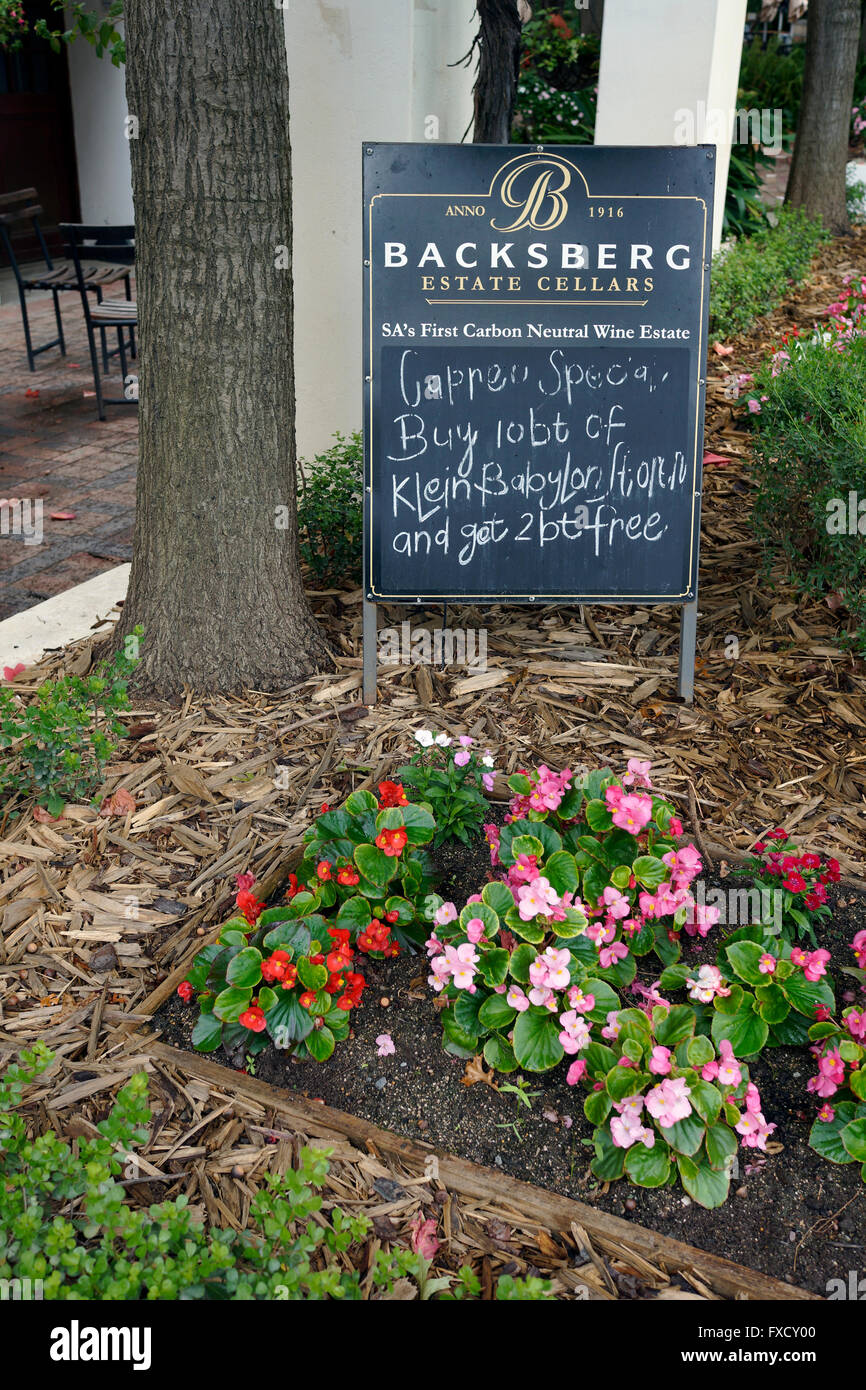 B
ANNO 1916
BACKSBERG
ESTATE CELLARS
SA's First Carbon Neutral Wine Estate
Special
Buy 10bt of
Klein Babylon
and get 2bt free
a
alamy
Image ID: FXCY00
www.alamy.com